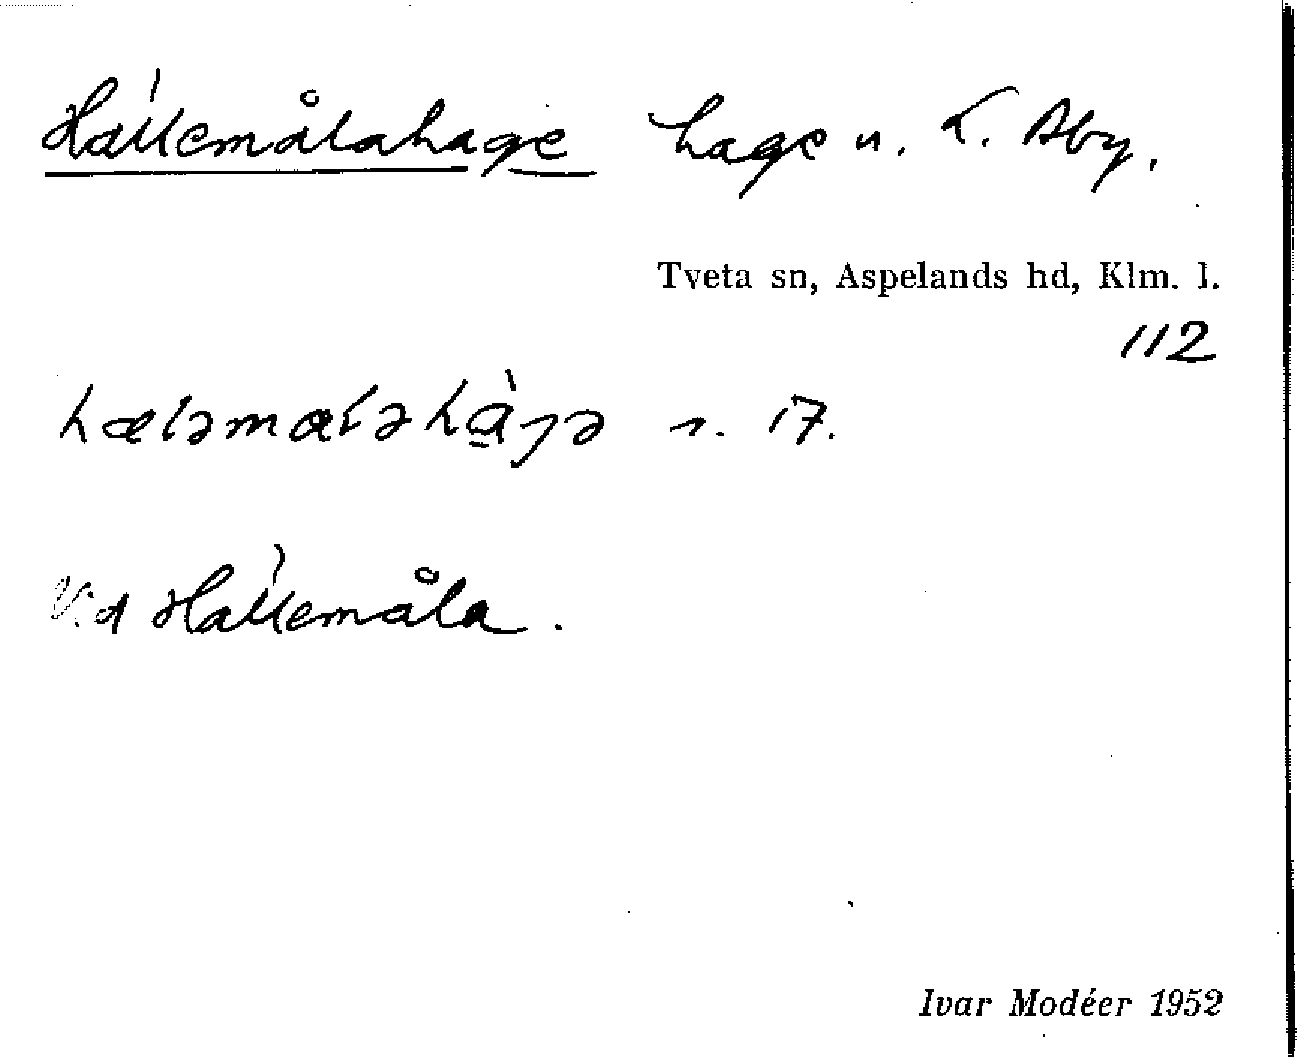 Hällemålahage hage u. L. Åby.
Tveta sn, Aspelands hd, Klm. l.
112
hæləmaləhàgə s. 17.
Vid Hällemåla.
Ivar Modéer 1952